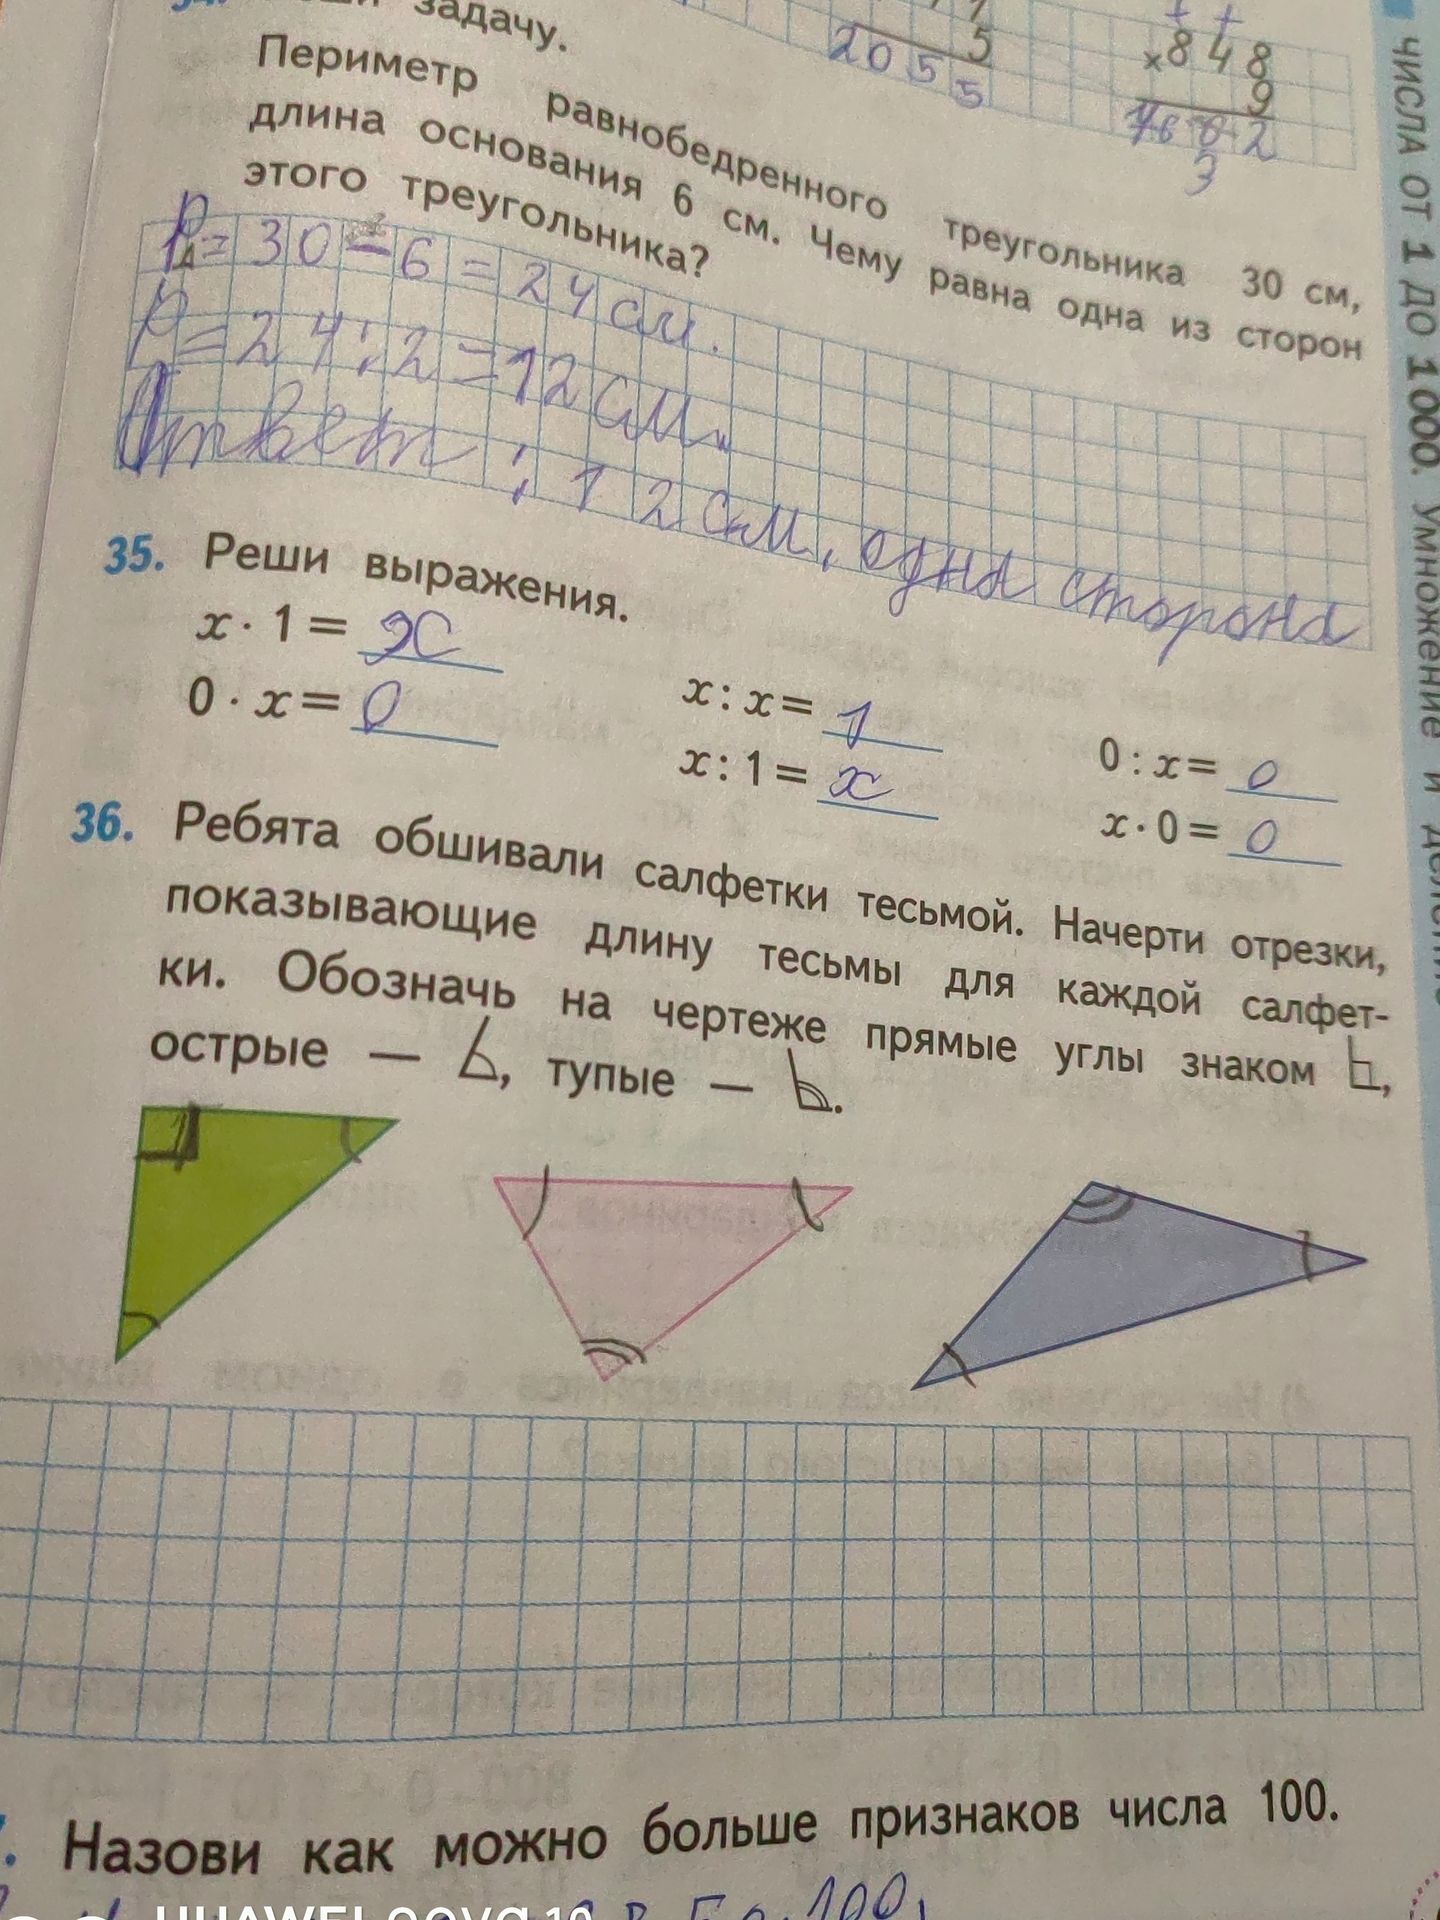 задачу.
5
2055
× 848
9
7632
Периметр равнобедренного треугольника 30 см,
длина основания 6 см. Чему равна одна из сторон
этого треугольника?
P = 30 - 6 = 24 см.
P = 24 : 2 = 12 см.
Ответ: 12 см, одна сторона
35. Реши выражения.
x · 1 = x
x : x = 1
0 : x = 0
0 · x = 0
x : 1 = x
x · 0 = 0
36. Ребята обшивали салфетки тесьмой. Начерти отрезки,
показывающие длину тесьмы для каждой салфет-
ки. Обозначь на чертеже прямые углы знаком ,
острые — , тупые — .
Назови как можно больше признаков числа 100.
100,
ЧИСЛА ОТ 1 ДО 1000. Умножение и деление